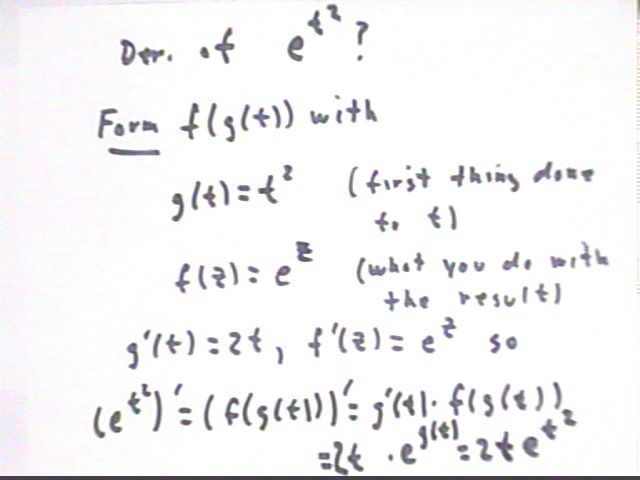 Der. of e^{t^2}?
Form f(g(t)) with
g(t) = t^2 (first thing done
to t)
f(z) = e^z (what you do with
the result)
g'(t) = 2t, f'(z) = e^z so
(e^{t^2})' = (f(g(t)))' = g'(t) · f(g(t))
= 2t · e^{g(t)} = 2t e^{t^2}